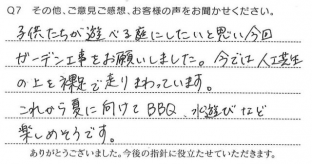 Q7 その他、ご意見ご感想、お客様の声をお聞かせください。
子供たちが遊べる庭にしたいと思い今回
ガーデン工事をお願いしました。今では人工芝生
の上を裸足で走りまわっています。
これから夏に向けてBBQ、水遊びなど
楽しめそうです。
ありがとうございました。今後の指針に役立たせていただきます。